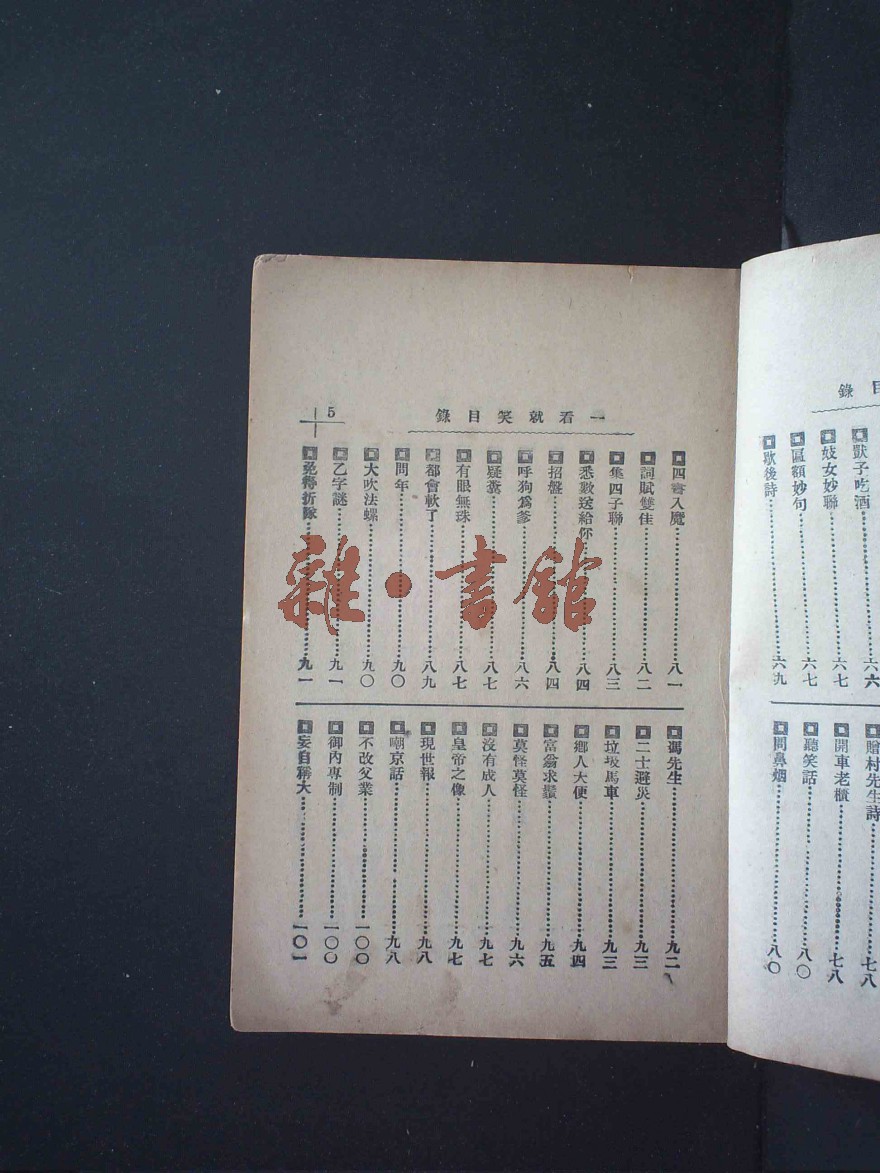 目錄
獃子吃酒 六六
妓女妙聯 六七
區額妙句 六七
歇後詩 六九
贈村先生詩 七八
開車老櫃 七八
聽笑話 八〇
問鼻烟 八〇
一看就笑目錄
5
四書入魔 八一
詞賦雙佳 八二
集四子聯 八三
悉數送給你 八四
招盤 八四
呼狗爲爹 八六
疑糞 八七
有眼無珠 八七
都會軟了 八九
問年 九〇
大吹法螺 九〇
乙字謎 九一
免得折隊 九一
馮先生 九二
二士避災 九三
垃圾馬車 九三
鄉人大便 九四
富翁求鬚 九五
莫怪莫怪 九六
沒有成人 九七
皇帝之像 九七
現世報 九八
嘲京話 九八
不改父業 一〇〇
御內專制 一〇〇
妄自稱大 一〇一
雜·書館